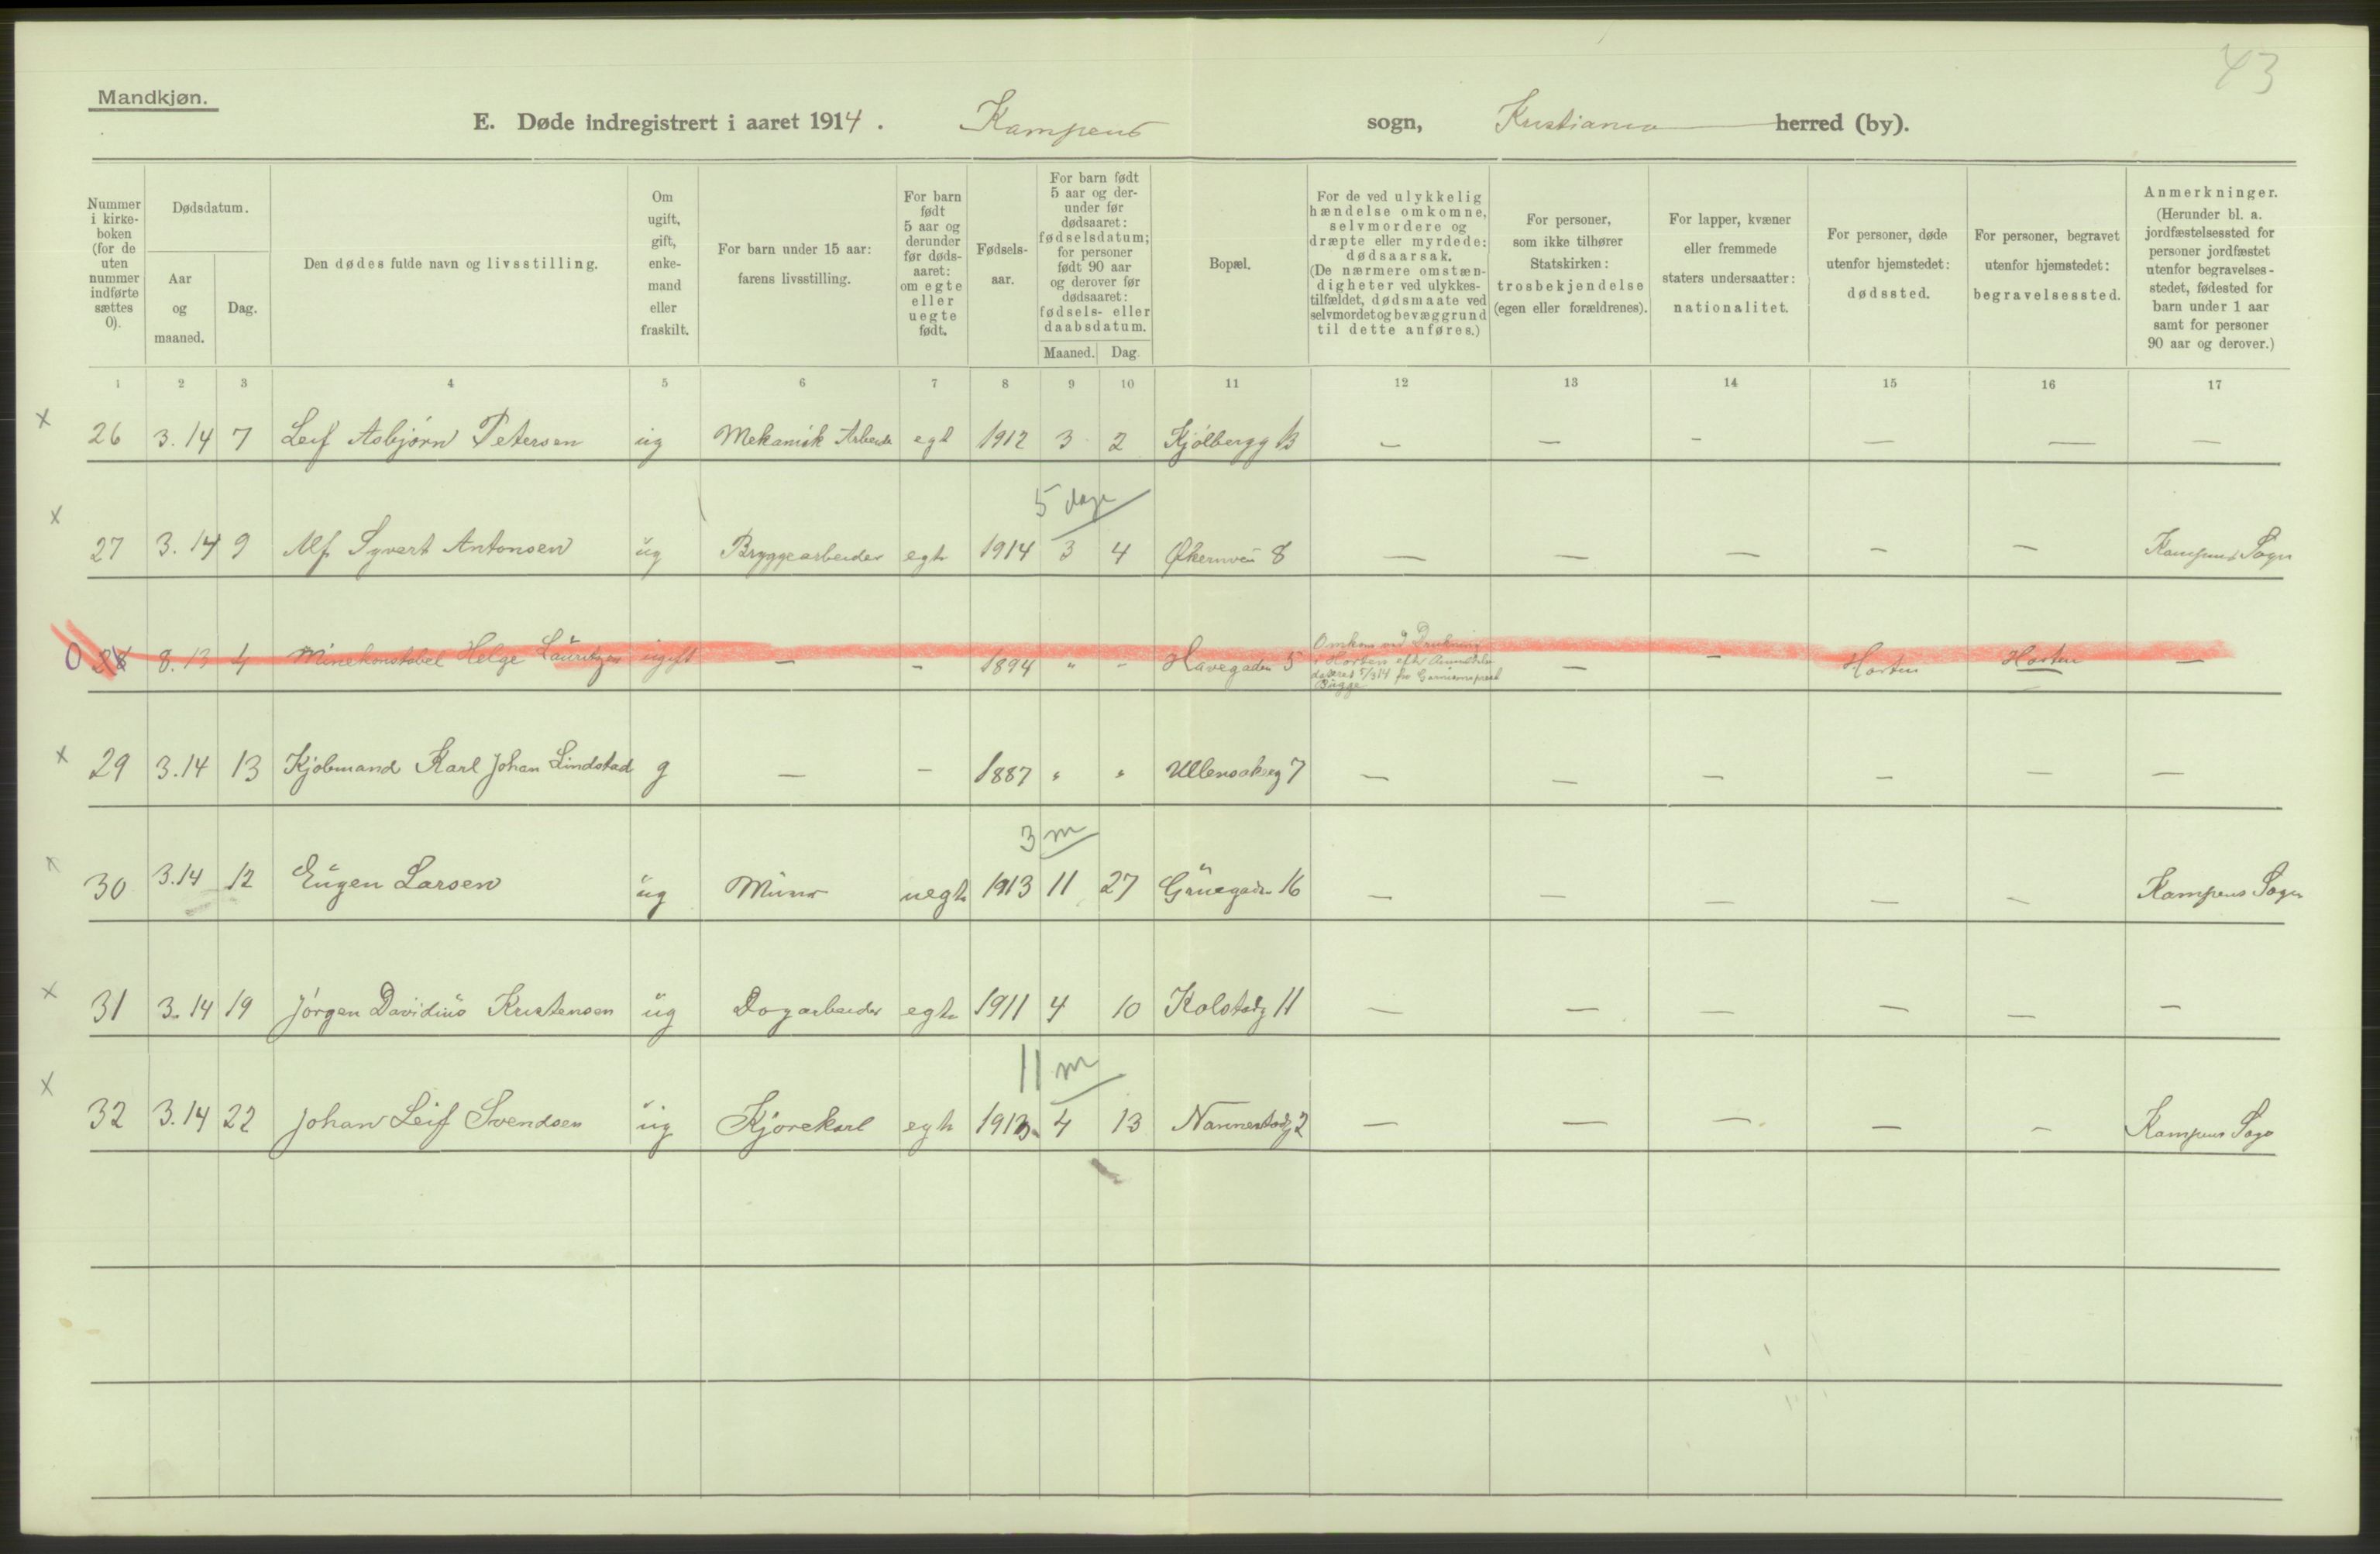 43
Mandkjøn.
E. Døde indregistrert i aaret 1914. Kampens sogn, Kristiania herred (by).
Nummer i kirke-boken (for de uten nummer indførte sættes 0).
Dødsdatum.
Aar og maaned.
Dag.
Den dødes fulde navn og livsstilling.
Om ugift, gift, enke-mand eller fraskilt.
For barn under 15 aar: farens livsstilling.
For barn født 5 aar og derunder før døds-aaret: om egte eller uegte født.
Fødsels-aar.
For barn født 5 aar og der-under før dødsaaret: fødselsdatum; for personer født 90 aar og derover før dødsaaret: fødsels- eller daabsdatum.
Maaned. Dag.
Bopæl.
For de ved ulykkelig hændelse omkomne, selvmordere og dræpte eller myrdede: dødsaarsak. (De nærmere omstæn-digheter ved ulykkes-tilfældet, dødsmaate ved selvmordet og bevæggrund til dette anføres.)
For personer, som ikke tilhører Statskirken: trosbekjendelse (egen eller forældrenes).
For lapper, kvæner eller fremmede staters undersaatter: nationalitet.
For personer, døde utenfor hjemstedet: dødssted.
For personer, begravet utenfor hjemstedet: begravelsessted.
Anmerkninger. (Herunder bl. a. jordfæstelsessted for personer jordfæstet utenfor begravelses-stedet, fødested for barn under 1 aar samt for personer 90 aar og derover.)
1 2 3 4 5 6 7 8 9 10 11 12 13 14 15 16 17
x 26 3.14 7 Leif Asbjørn Petersen ug Mekanisk Arbeide egt 1912 3 2 Kjølbergg 13 — — — — — —
5 dage
x 27 3.14 9 Alf Syvert Antonsen ug Bryggearbeider egte 1914 3 4 Økernvei 8 — — — — — Kampens Sogn
0 28 8.13 4 Minekonstabel Helge Lauritzen ugift — — 1894 " - Havegaden 5 Omkom ved Drukning
i Horten eft Anmeldelse
dateret 5/3 14 fra Garnisonsprest
Bugge — — Horten Horten —
x 29 3.14 13 Kjøbmand Karl Johan Lindstad g — — 1887 " " Ullensakerg 7 — — — — — —
3 m
x 30 3.14 12 Eugen Larsen ug Murer uegte 1913 11 27 Grüegaden 16 — — — — — Kampens Sogn
x 31 3.14 19 Jørgen Davidius Kristensen ug Dagarbeider egte 1911 4 10 Kolstadg 11 — — — — — —
11 m
x 32 3.14 22 Johan Leif Svendsen ug Kjørekarl egte 1913 4 13 Nannestadg 2 — — — — — Kampens Sogn